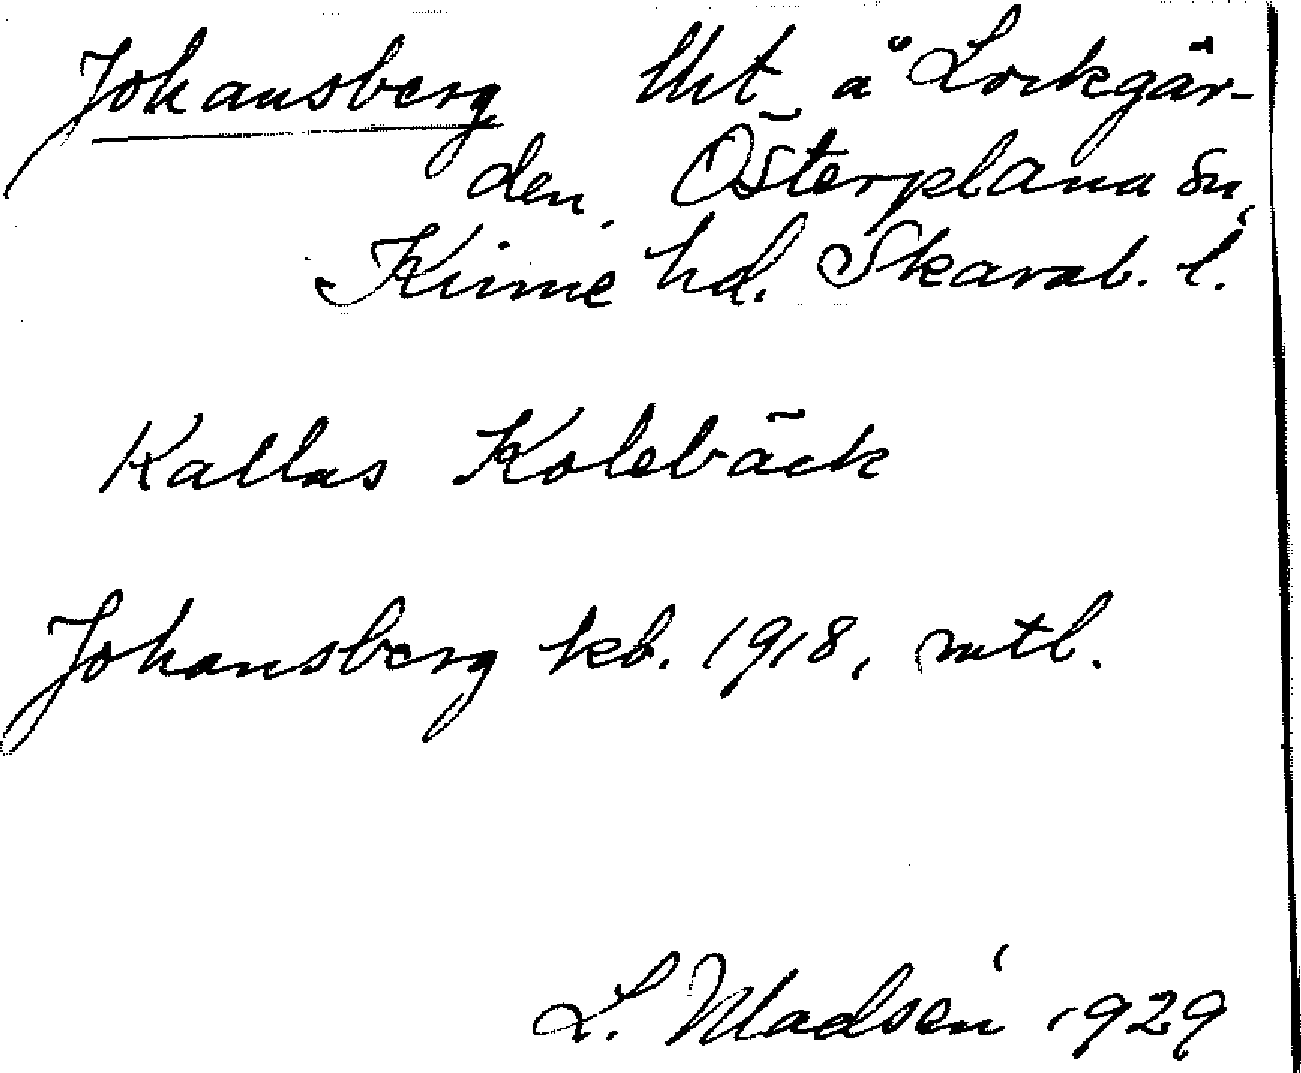 Johansberg Utt. å Lockgår-
den, Österplana sn,
Kinne hd. Skarab. l.
Kallas Kolebäck
Johansberg kb. 1918, mtl.
L. Madsén 1929